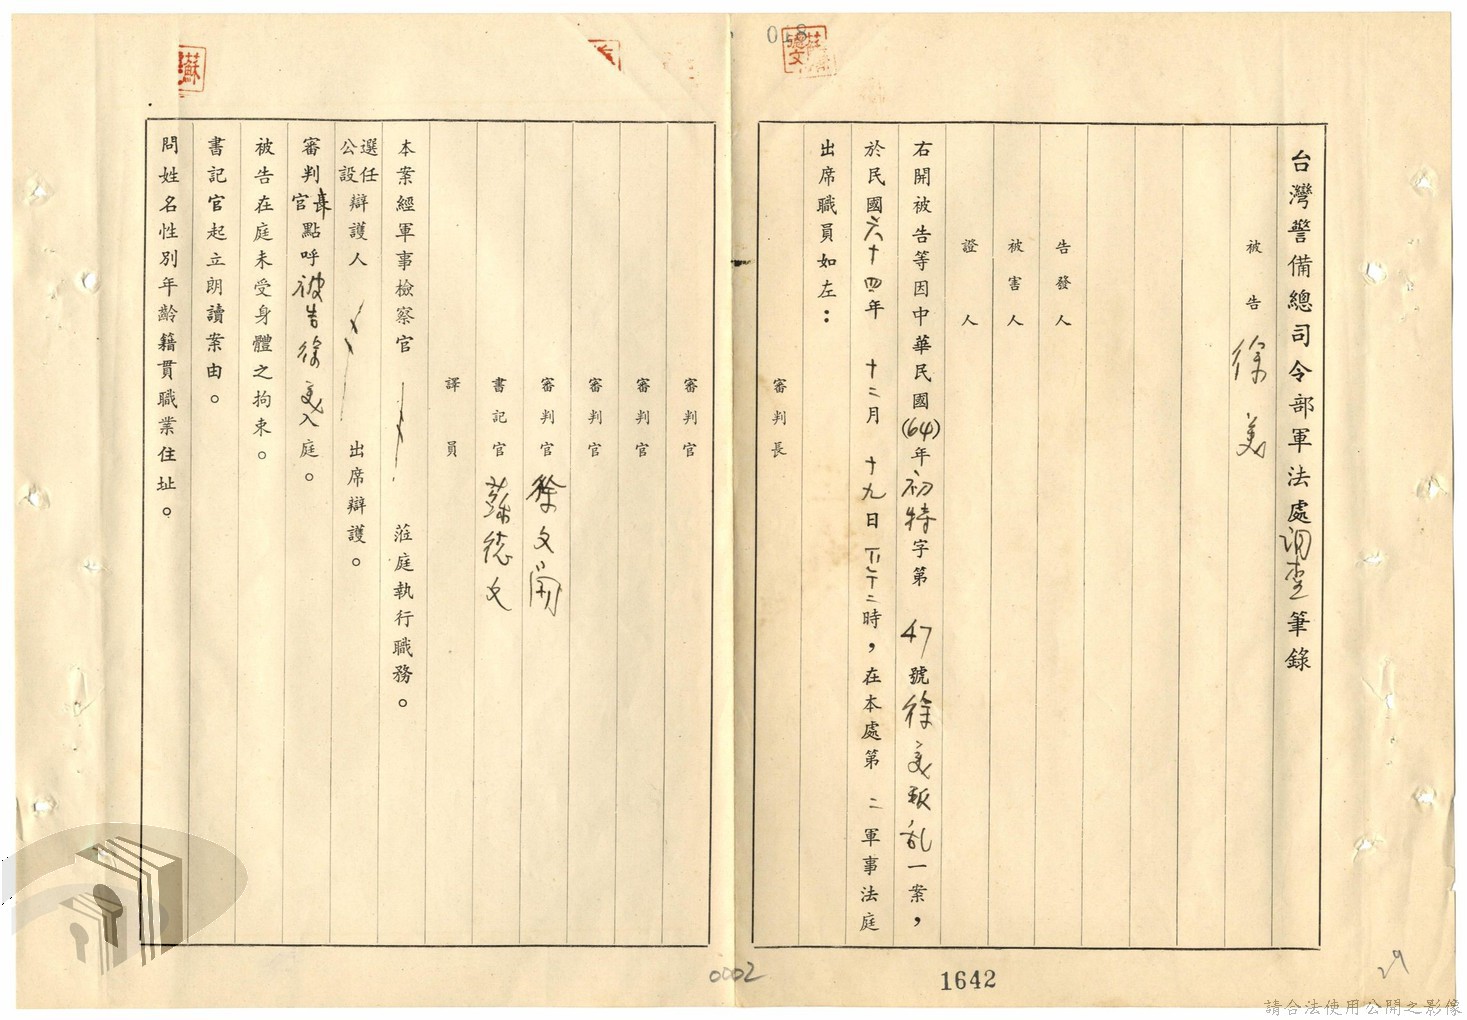 018
台灣警備總司令部軍法處調查筆錄
被告 徐美
告發人
被害人
證人
右開被告等因中華民國(64)年初特字第 47 號徐美叛乱一案，
於民國六十四年 十二月 十九日 下午二時，在本處第 二 軍事法庭
出席職員如左：
審判長
審判官
審判官
審判官
審判官 徐文開
書記官 蘇德文
譯員
本案經軍事檢察官 蒞庭執行職務。
選任
公設辯護人 出席辯護。
審判長
官點呼被告徐美入庭。
被告在庭未受身體之拘束。
書記官起立朗讀案由。
問姓名性別年齡籍貫職業住址。
0002
1642
29
請合法使用公開之影像